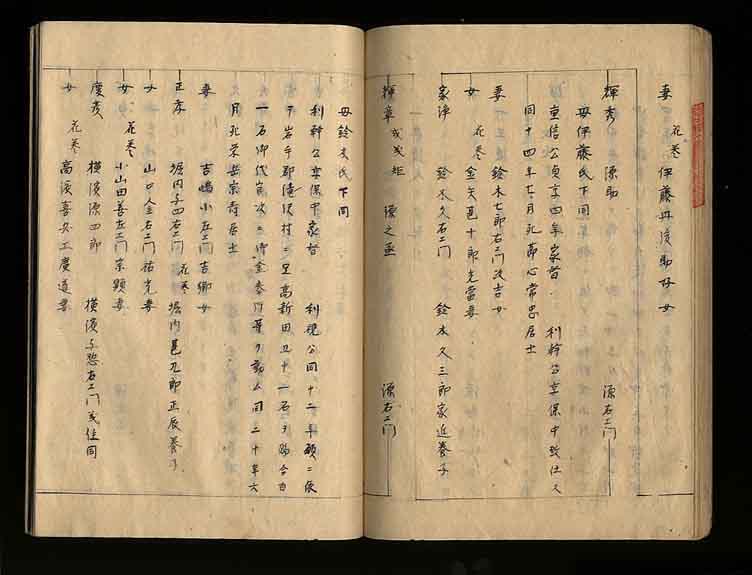 妻 花巻 伊藤丹後助好女
輝秀 源助 源右エ門
母伊藤氏下同
重信公貞享四年家督 利幹公享保中致仕又
同十四年七月死節心常忠居士
妻 鈴木七郎右エ門次吉女
女 花巻 金矢邑十郎光当妻
家淳 鈴木久右エ門 鈴木久三郎家近養子
輝章 或茂矩 源之丞 源右エ門
母鈴木氏下同
利幹公享保中家督 利視公同十二年願ニ依
テ岩手郡滝沢村ニ足高新田五十一石ヲ賜合百
一石御代官次ニ御金奉行等ヲ勤ム同二十年六
月死栄岳宗寿居士
妻 吉嶋小左エ門吉郷女
正孝 堀内子四右エ門 花巻 堀内邑九郎正辰養子
女 山口金右エ門祐光妻
女 花巻 小山田善左エ門宗顕妻
慶孝 横濱源四郎 横濱子惣右エ門或住同
女 花巻 高濱喜兵エ廣道妻